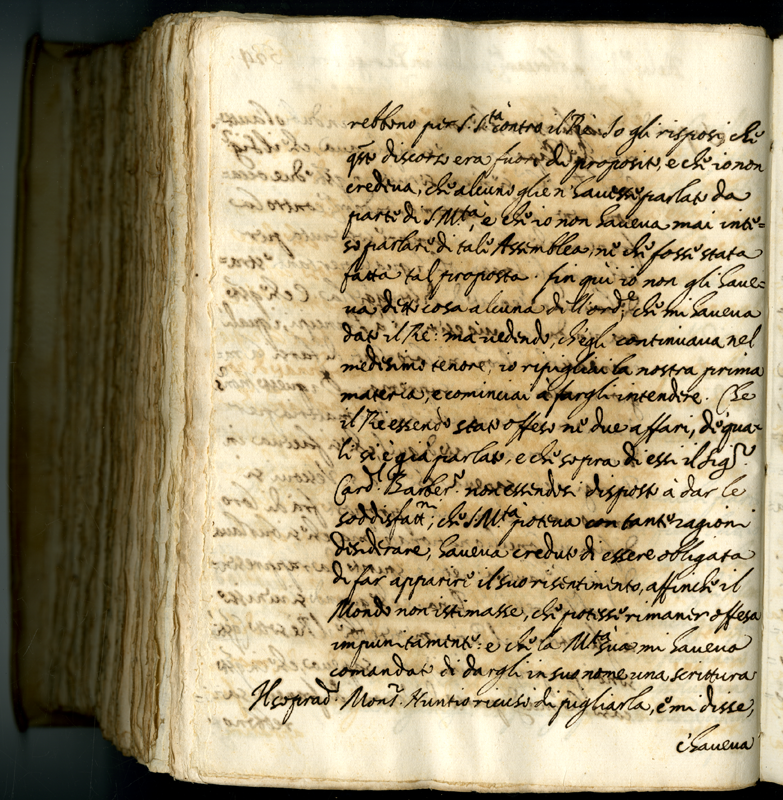 rebbeno per S. S.tà contro il Re. Io gli risposi, che
q.sto discorso era fuore di proposito, e che io non
credeva, che alcuno glien'havesse parlato da
parte di S. M.tà, e che io non haveva mai inte=
so parlare di tale Assemblea, nè che fosse stata
fatta tal proposta. fin qui io non gli have=
va detto cosa alguna dell'ord.e, che mi haveva
dato il Re: ma vedendo, ch'egli continuava nel
medesimo tenore, io ripigliai la nostra prima
materia, e cominciai à fargli intendere. Che
il Re essendo stato offeso ne due affari, de qua=
li si è già parlato, e che sopra di essi il Sig.r
Card.l Barber.o non essendosi disposto à dar le
soddisfatt.ni, che S. M.tà poteva con tante ragioni
desiderare, haveva creduto di essere obligata
di far apparire il suo risentimento, affinche il
Mondo non istimasse, che potesse rimaner offesa
impunitamente: e che la M.tà sua mi haveva
comandato di dargli in suo nome una scrittura
Il soprad.o Mons.r Nuntio ricusò di pigliarla, e mi disse,
c'haveva